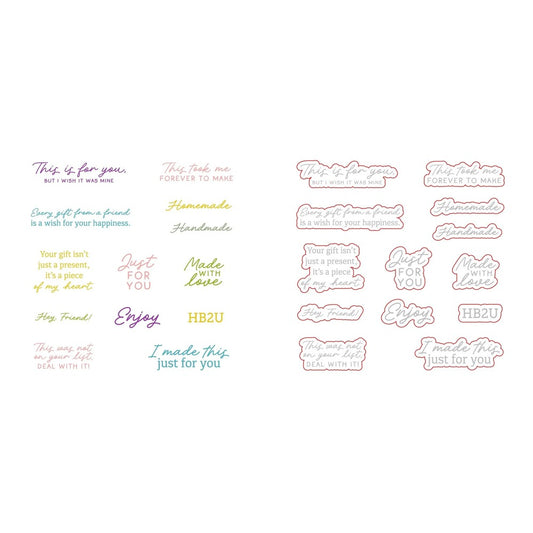 This is for you,
BUT I WISH IT WAS MINE
This took me
FOREVER TO MAKE
Every gift from a friend
is a wish for your happiness.
Homemade
Handmade
Your gift isn't
just a present,
it's a piece
of my heart.
Just
FOR
YOU
Made
WITH
love
Hey, Friend!
Enjoy
HB2U
This was not
on your list.
DEAL WITH IT!
I made this
just for you
This is for you,
BUT I WISH IT WAS MINE
This took me
FOREVER TO MAKE
Every gift from a friend
is a wish for your happiness.
Homemade
Handmade
Your gift isn't
just a present,
it's a piece
of my heart.
Just
FOR
YOU
Made
WITH
love
Hey, Friend!
Enjoy
HB2U
This was not
on your list.
DEAL WITH IT!
I made this
just for you